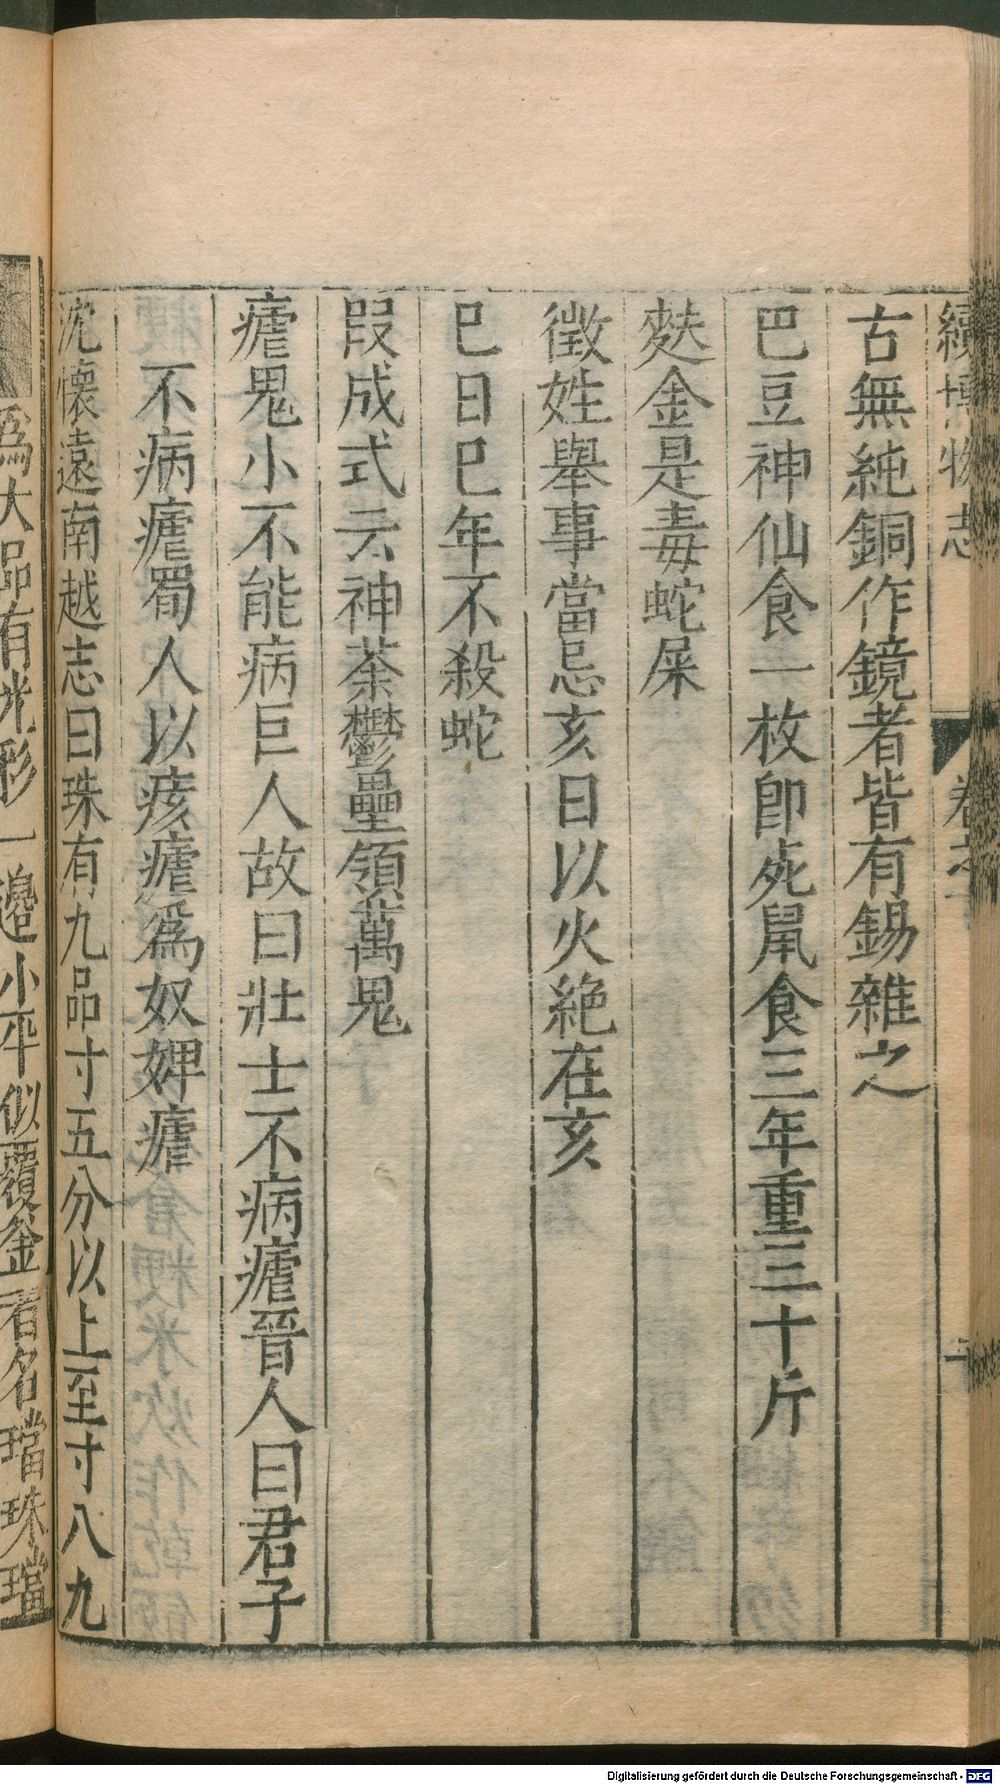 續博物志 卷之
古無純銅作鏡者皆有錫雜之
巴豆神仙食一枚卽死鼠食三年重三十斤
麩金是毒蛇屎
徵姓舉事當忌亥日以火絶在亥
巳日巳年不殺蛇
段成式云神荼鬱壘領萬鬼
瘧鬼小不能病巨人故曰壯士不病瘧晉人曰君子
不病瘧蜀人以痎瘧爲奴婢瘧
沈懷遠南越志曰珠有九品寸五分以上至寸八九
爲大品有光彩一邊小平似覆釜者名璫珠璫
Digitalisierung gefördert durch die Deutsche Forschungsgemeinschaft - DFG